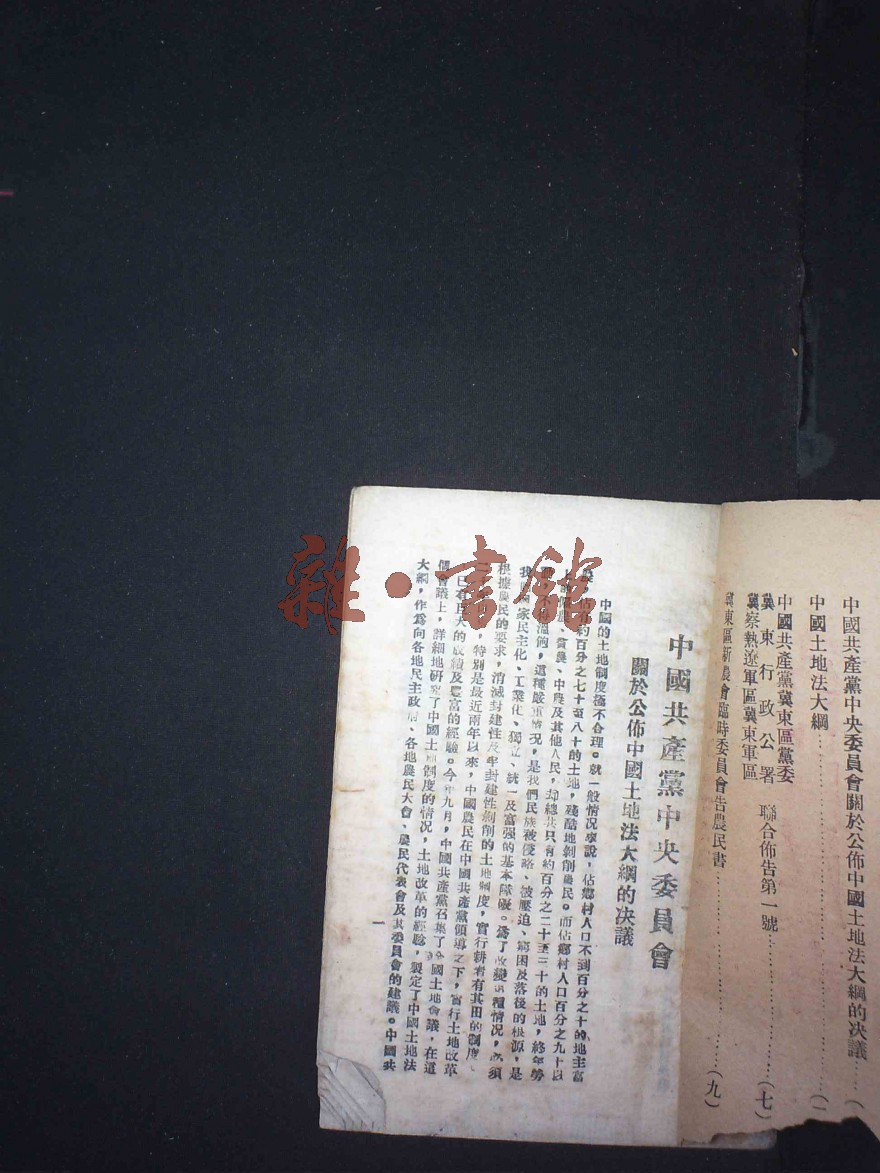 中國共產黨中央委員會關於公佈中國土地法大綱的决議……（
中國土地法大綱……（一
中國共產黨冀東區黨委
冀東行政公署 聯合佈告第一號……（七）
冀察熱遼軍區冀東軍區
冀東區新農會臨時委員會告農民書……（九）
中國共產黨中央委員會
關於公佈中國土地法大綱的决議
中國的土地制度極不合理。就一般情况來說，佔鄉村人口不到百分之十的地主富
農，佔有約百分之七十至八十的土地，殘酷地剝削農民。而佔鄉村人口百分之九十以
、貧農、中農及其他人民，却總共只有約百分之二十至三十的土地，終年勞
溫飽，這種嚴重情况，是我們民族被侵略、被壓迫、窮困及落後的根源，是
我們國家民主化、工業化、獨立、統一及富强的基本障礙。爲了改變這種情况，必須
根據農民的要求，消滅封建性及半封建性剝削的土地制度，實行耕者有其田的制度。
，特別是最近兩年以來，中國農民在中國共產黨領導之下，實行土地改革
已有巨大的成績及豐富的經驗。今年九月，中國共產黨召集了全國土地會議，在這
個會議上，詳細地研究了中國土地制度的情况，土地改革的經驗，製定了中國土地法
大綱，作爲向各地民主政府、各地農民大會、農民代表會及其委員會的建議。中國共
一
雜·書館